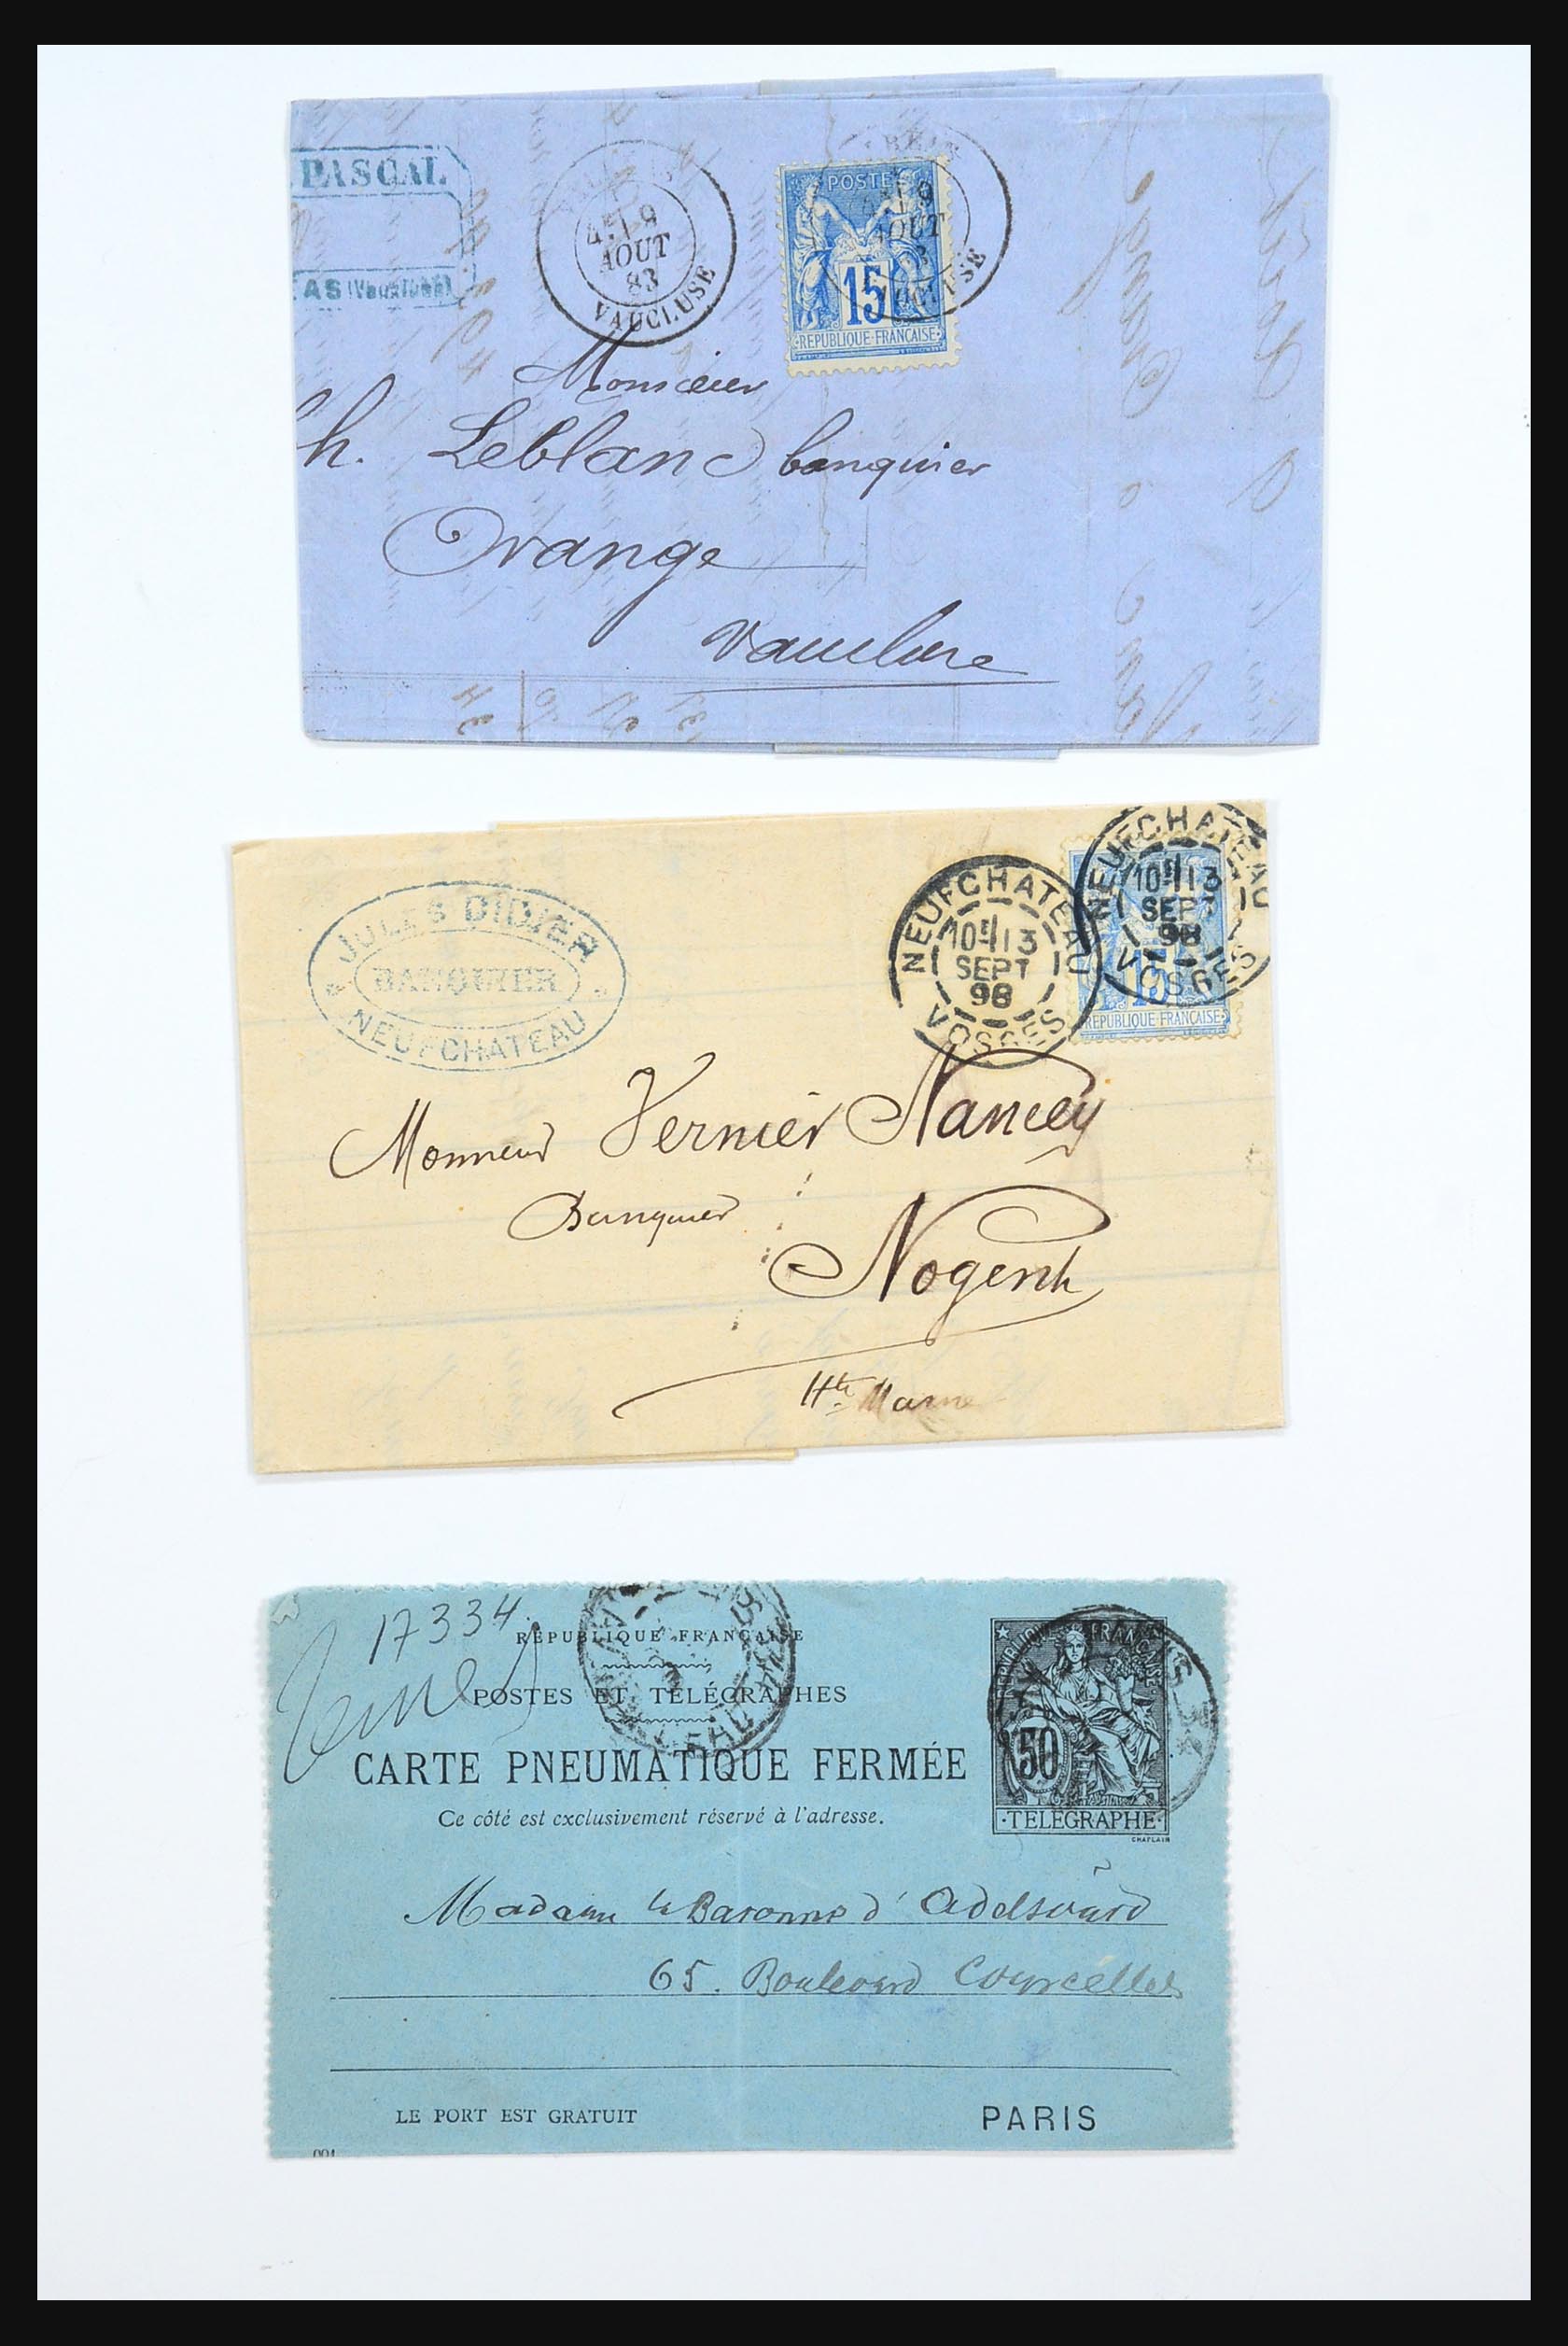 PASCAL
AS (Vaucluse)
19
AOUT
83
VAUCLUSE
POSTES
15
REPUBLIQUE FRANÇAISE
19
AOUT
Monsieur
Ch. Leblanc banquier
Orange
Vaucluse
JULES DIDIER
BANQUIER
NEUFCHATEAU
NEUFCHATEAU
10 13
SEPT
98
VOSGES
NEUFCHATEAU
10 13
SEPT
98
VOSGES
15
REPUBLIQUE FRANÇAISE
Monsieur Vernier Nancey
Banquier
Nogent
Hte Marne
17334
REPUBLIQUE FRANÇAISE
POSTES ET TÉLÉGRAPHES
CARTE PNEUMATIQUE FERMÉE
Ce côté est exclusivement réservé à l'adresse.
REPUBLIQUE FRANÇAISE
50
TELEGRAPHE
CHAPLAIN
Madame la Baronne d'Adelsward
65. Boulevard Courcelles
LE PORT EST GRATUIT
PARIS